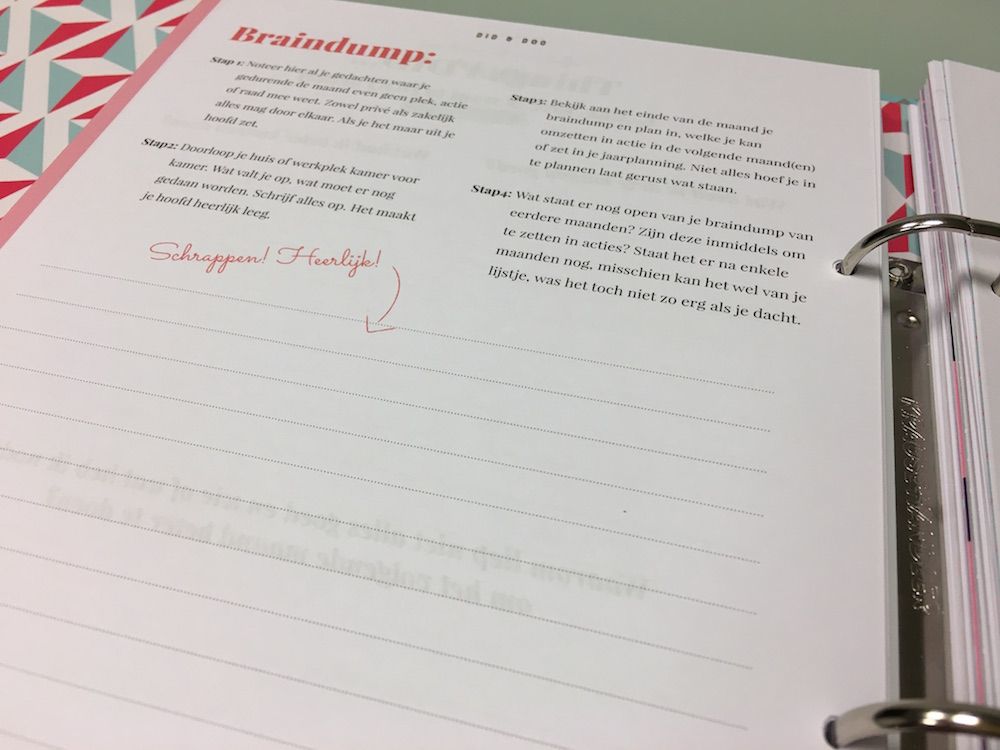 DID & DOC
Braindump:
Stap 1: Noteer hier al je gedachten waar je
gedurende de maand even geen plek, actie
of raad mee weet. Zowel privé als zakelijk
alles mag door elkaar. Als je het maar uit je
hoofd zet.
Stap2: Doorloop je huis of werkplek kamer voor
kamer. Wat valt je op, wat moet er nog
gedaan worden. Schrijf alles op. Het maakt
je hoofd heerlijk leeg.
Stap3: Bekijk aan het einde van de maand je
braindump en plan in, welke je kan
omzetten in actie in de volgende maand(en)
of zet in je jaarplanning. Niet alles hoef je in
te plannen laat gerust wat staan.
Stap4: Wat staat er nog open van je braindump van
eerdere maanden? Zijn deze inmiddels om
te zetten in acties? Staat het er na enkele
maanden nog, misschien kan het wel van je
lijstje, was het toch niet zo erg als je dacht.
Schrappen! Heerlijk!
Waarom liep niet alles goed en wie of wat heb ik
om het volgende maand beter te doen?